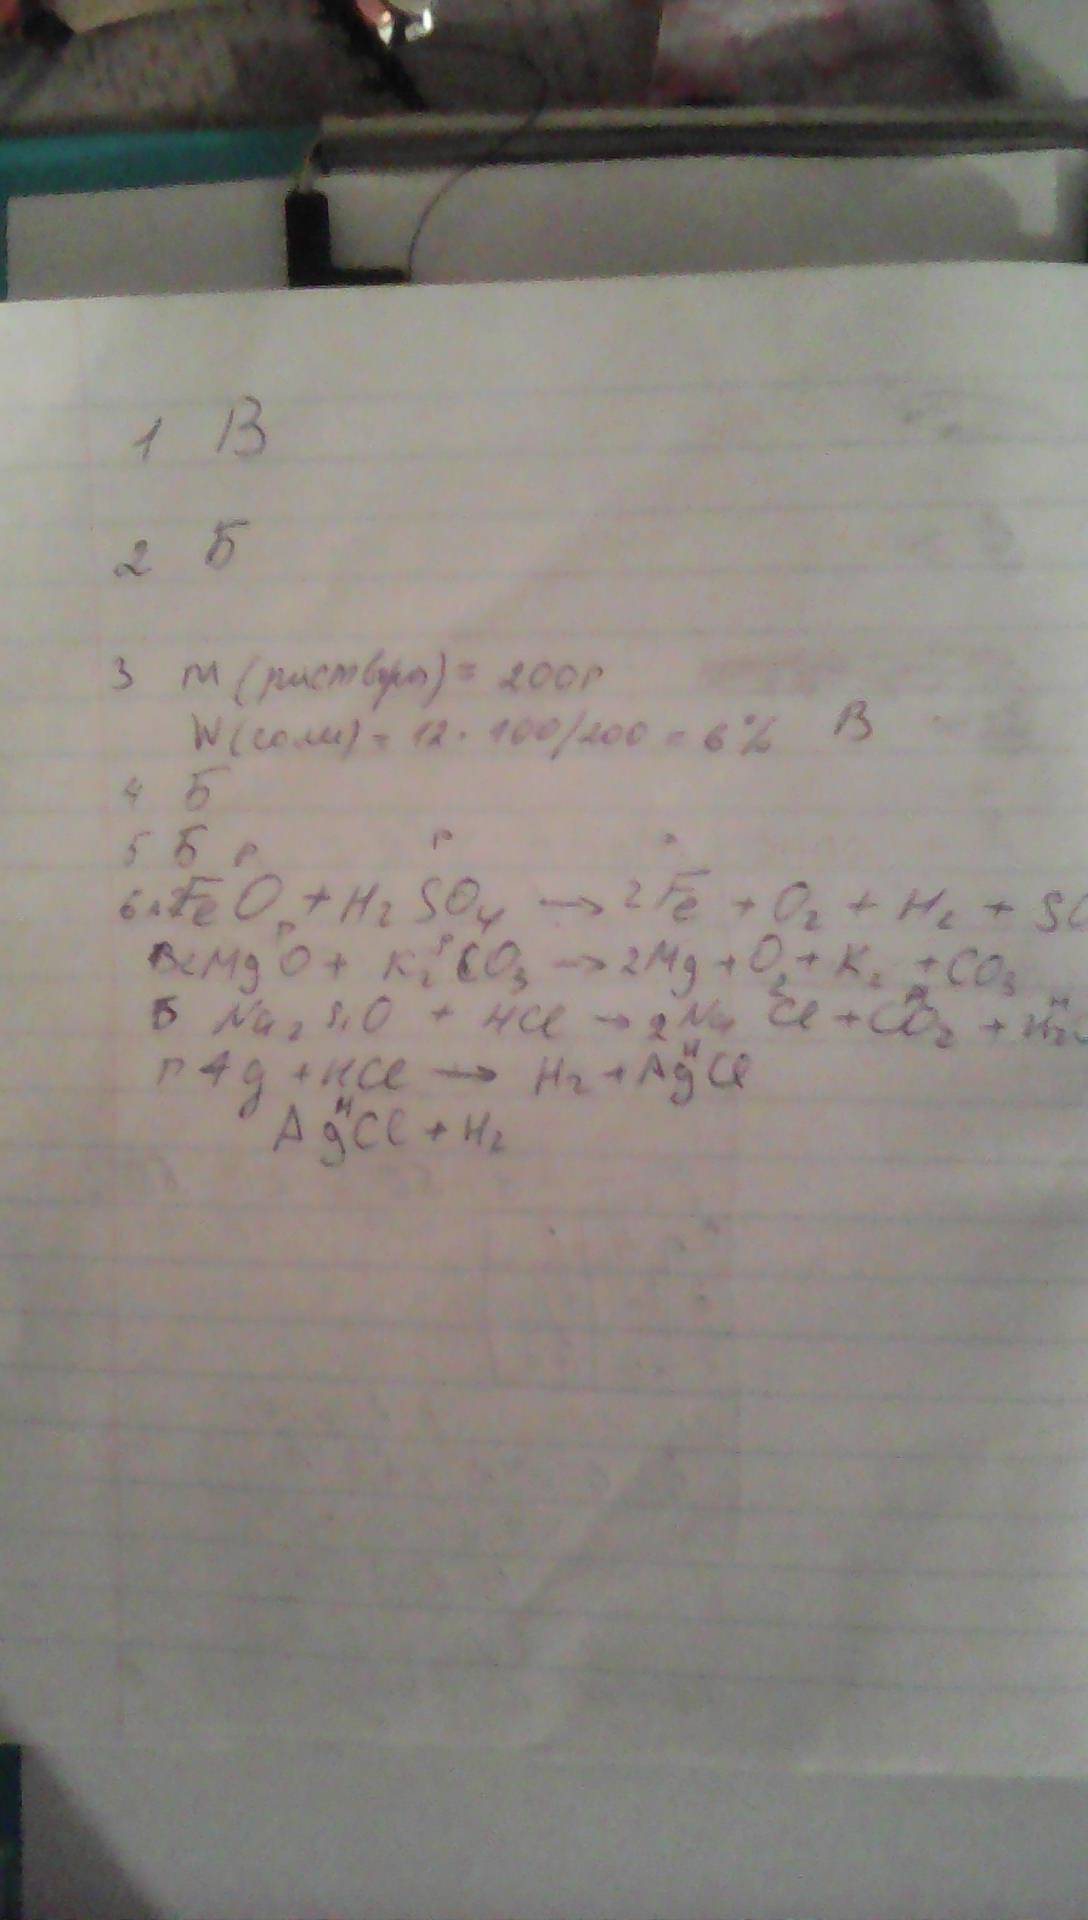 1 В
2 Б
3 m (раствора) = 200г
W (соли) = 12 · 100/200 = 6% В
4 Б
5 Б
FeO + H2SO4 → 2Fe + O2 + H2 + SO
В 2MgO + K2CO3 → 2Mg + O2 + K2 + CO3
Б Na2 O + HCl → 2Na Cl + CO2 +
г Ag + HCl → H2 + AgCl
AgCl + H2